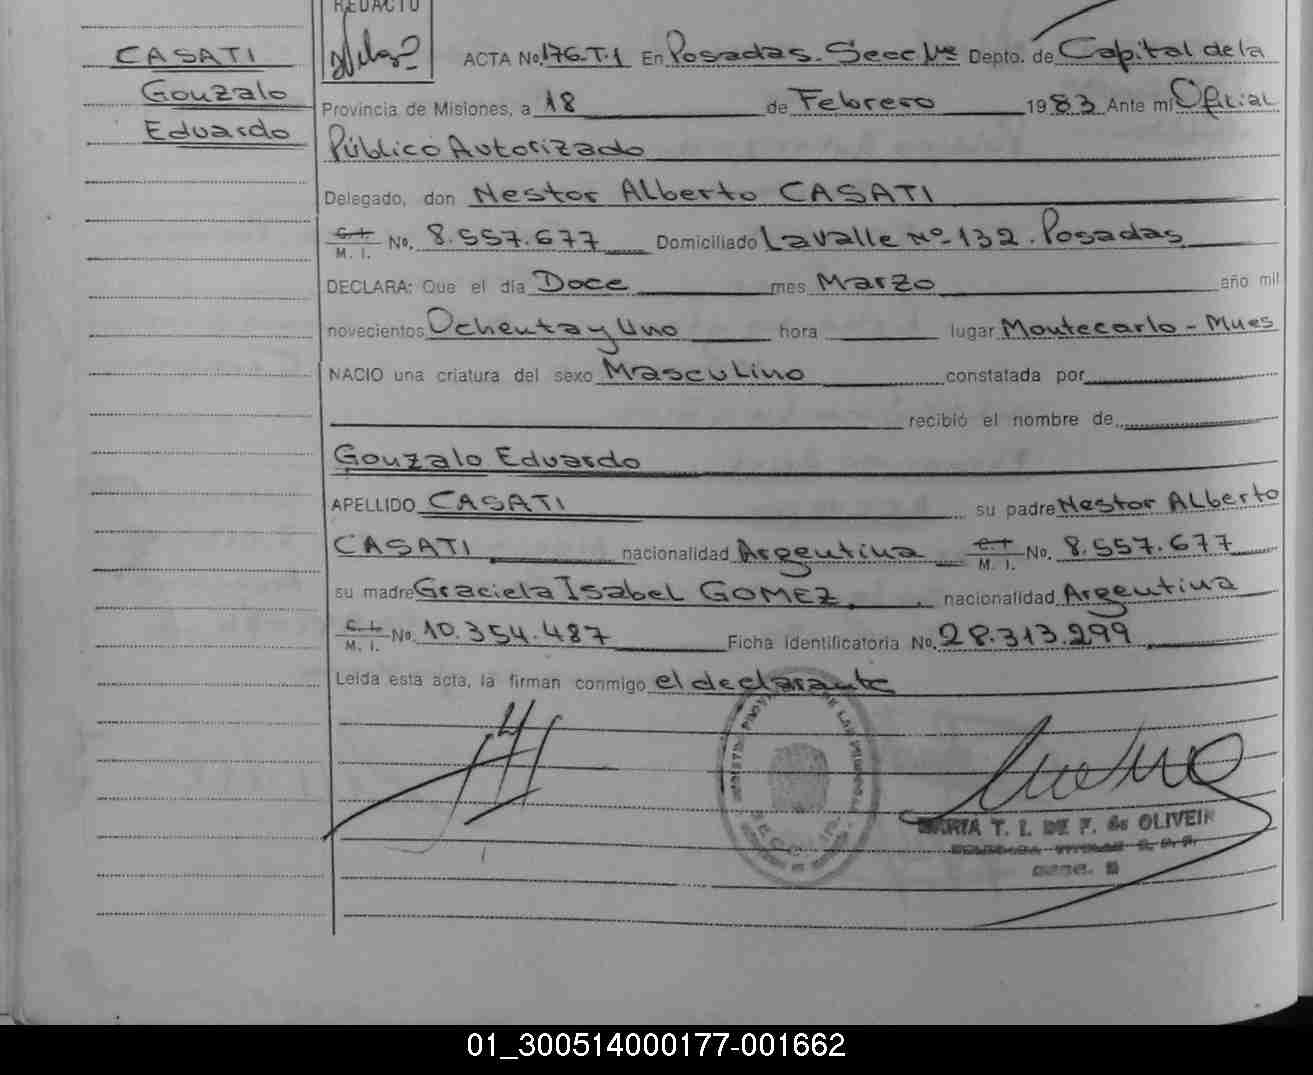 REDACTO
CASATI
Gonzalo
Eduardo
ACTA No. 176.T.1 En Posadas. Secc 1ra Depto. de Capital de la
Provincia de Misiones, a 18 de Febrero 1983 Ante mi Oficial
Público Autorizado
Delegado, don Nestor Alberto CASATI
C. I.
M. I. No. 8.557.677 Domiciliado Lavalle Nº 132. Posadas
DECLARA: Que el día Doce mes Marzo año mil
novecientos Ochenta y Uno hora lugar Montecarlo - Mnes
NACIO una criatura del sexo Masculino constatada por
recibió el nombre de
Gonzalo Eduardo
APELLIDO CASATI su padre Nestor Alberto
CASATI nacionalidad Argentina C. I. M. I. No. 8.557.677
su madre Graciela Isabel GOMEZ. nacionalidad Argentina
C. I. M. I. No. 10.354.487 Ficha Identificatoria No. 28.313.299
Leida esta acta, la firman conmigo el declarante
MARIA T. I. DE F. de OLIVEIR
01_300514000177-001662